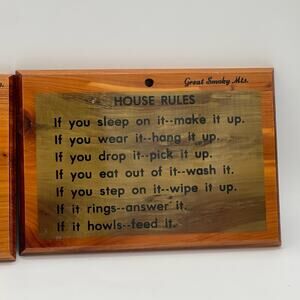 Great Smoky Mts.
HOUSE RULES
If you sleep on it--make it up.
If you wear it--hang it up.
If you drop it--pick it up.
If you eat out of it--wash it.
If you step on it--wipe it up.
If it rings--answer it.
If it howls--feed it.